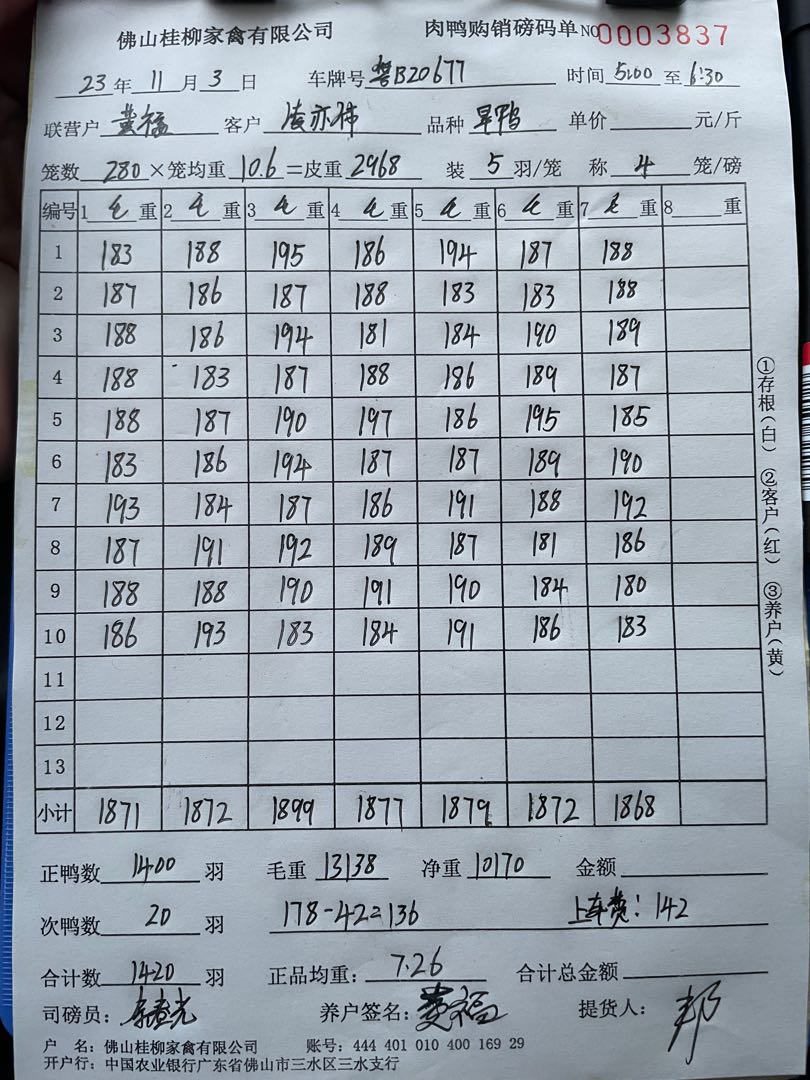 佛山桂柳家禽有限公司 肉鸭购销磅码单 NO 0003837
23年11月3日 车牌号 粤B20677 时间 5:00 至 6:30
联营户 黄福 客户 凌亦伟 品种 旱鸭 单价 元/斤
笼数 280 ×笼均重 10.6 =皮重 2968 装 5 羽/笼 称 4 笼/磅
编号 1 毛 重 2 毛 重 3 毛 重 4 毛 重 5 毛 重 6 毛 重 7 毛 重 8 重
1 183 188 195 186 194 187 188
2 187 186 187 188 183 183 188
3 188 186 194 181 184 190 189
4 188 183 187 188 186 189 187
5 188 187 190 197 186 195 185
6 183 186 194 187 187 189 190
7 193 184 187 186 191 188 192
8 187 191 192 189 187 181 186
9 188 188 190 191 190 184 180
10 186 193 183 184 191 186 183
11
12
13
小计 1871 1872 1899 1877 1879 1872 1868
①存根(白) ②客户(红) ③养户(黄)
正鸭数 1400 羽 毛重 13138 净重 10170 金额
次鸭数 20 羽 178-42=136 上车费: 142
合计数 1420 羽 正品均重: 7.26 合计总金额
司磅员: 养户签名: 黄福 提货人: 邦
户 名: 佛山桂柳家禽有限公司 账号: 444 401 010 400 169 29
开户行: 中国农业银行广东省佛山市三水区三水支行